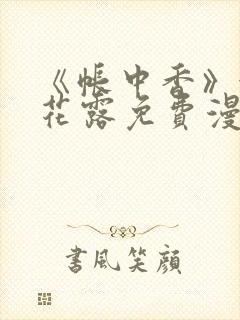 《帐中香》
花露免費漫
書風笑顔